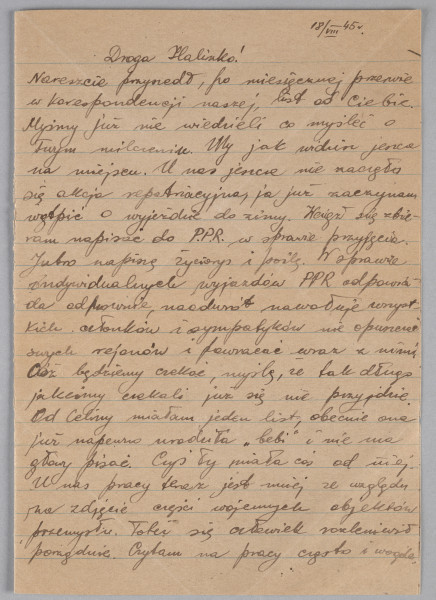 18/VIII 45r.
Droga Halinko!
Nareszcie przyszedł, po miesięcznej przerwie
w korespondencji naszej, list od Ciebie.
Myśmy już nie wiedzieli co myśleć o
Twym milczeniu. Wy jak widzę jeszcze
na miejscu. U nas jeszcze nie zaczęła
się akcja repatriacyjna, ja już zaczynam
wątpić o wyjeździe do zimy. się zbie-
ram napisać do P.P.R. w sprawie przyjęcia.
Jutro napiszę życiorys i poślę. W sprawie
indywidualnych wyjazdów PPR odpowia-
da odmownie, naodwrót nawołuje wszyst-
kich członków i sympatyków nie opuszczać
swych rejonów i powracać wraz z nimi
Cóż będziemy czekać, myślę, że tak długo
jakeśmy czekali już się nie przyjdzie.
Od Celiny miałam jeden list, obecnie ona
już napewno urodziła „bebi” i nie ma
głowy pisać. Czyś Ty miała coś od niej.
U nas pracy teraz jest mniej ze względu
na zdjęcie części wojennych objektów
przemysłu. Toteż się człowiek rozleniwił
porządnie. Czytam na pracy często i